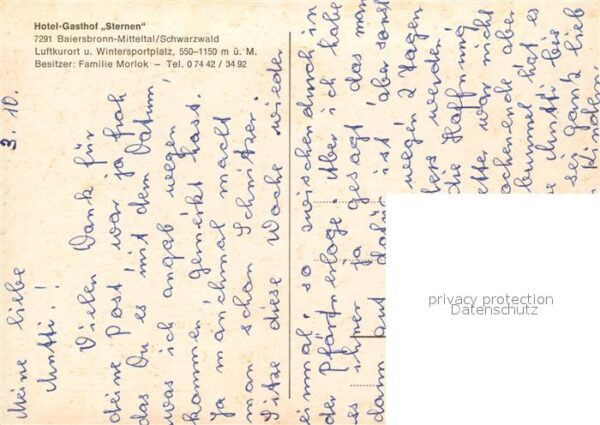 Hotel-Gasthof „Sternen"
7291 Baiersbronn-Mitteltal/Schwarzwald
Luftkurort u. Wintersportplatz, 550–1150 m ü. M.
Besitzer: Familie Morlok – Tel. 0 74 42 / 34 92
3. 10.
Meine liebe
Mutti!!
Vielen Dank für
deine Post, war ja froh
das Du es mit dem Datum,
was ich angab wegen
kommen gemerkt hast.
Ja manchmal macht
man schon Schnitzer
Sitze diese Woche wieder
einmal, so zwischendurch in
der Pförtnerloge. Aber ich habe
es ihner ja gesagt das man
dann auf dafür ist aber sonst
wegen 2 Tagen
werden
die Hoffnung
war nicht
aber
bummel hat es
Mutti sei
sei ganz lieb
Kindern.
privacy protection
Datenschutz